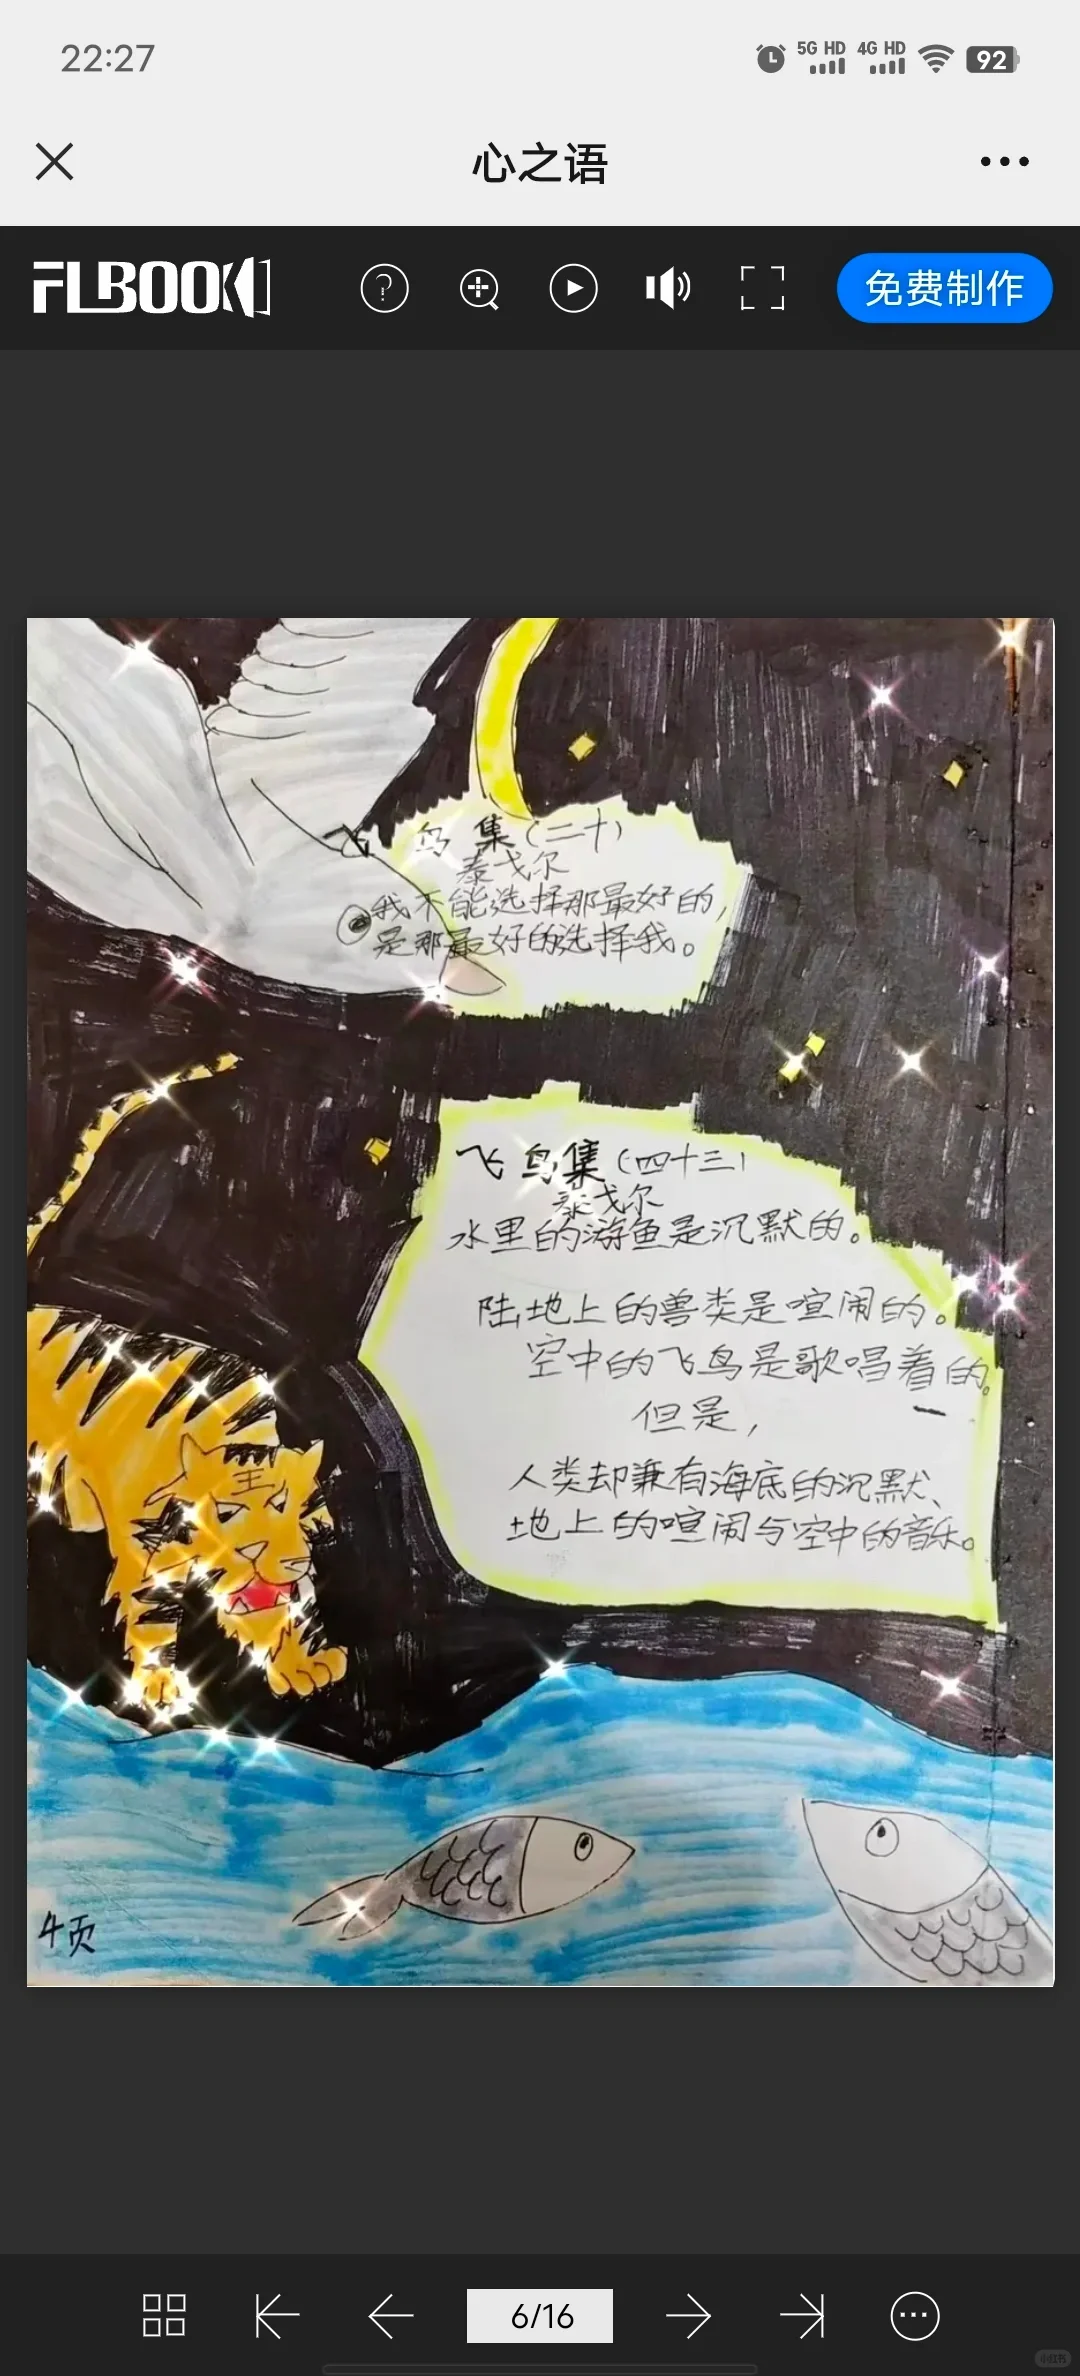 22:27
5G HD 4G HD 92
心之语
FLBOOK
免费制作
飞鸟集(二十)
泰戈尔
我不能选择那最好的,
是那最好的选择我。
飞鸟集(四十三)
泰戈尔
水里的游鱼是沉默的。
陆地上的兽类是喧闹的。
空中的飞鸟是歌唱着的。
但是,
人类却兼有海底的沉默、
地上的喧闹与空中的音乐。
王
4页
6/16
小红书